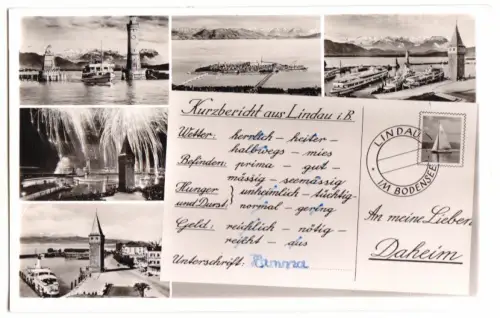 Kurzbericht aus Lindau i.B.
Wetter: herrlich – heiter –
halbwegs – mies
Befinden: prima – gut –
mässig – seemässig
Hunger und Durst: } unheimlich – tüchtig –
normal – gering
Geld: reichlich – nötig –
reicht – aus
Unterschrift: Hanna
LINDAU
IM BODENSEE
An meine Lieben
Daheim